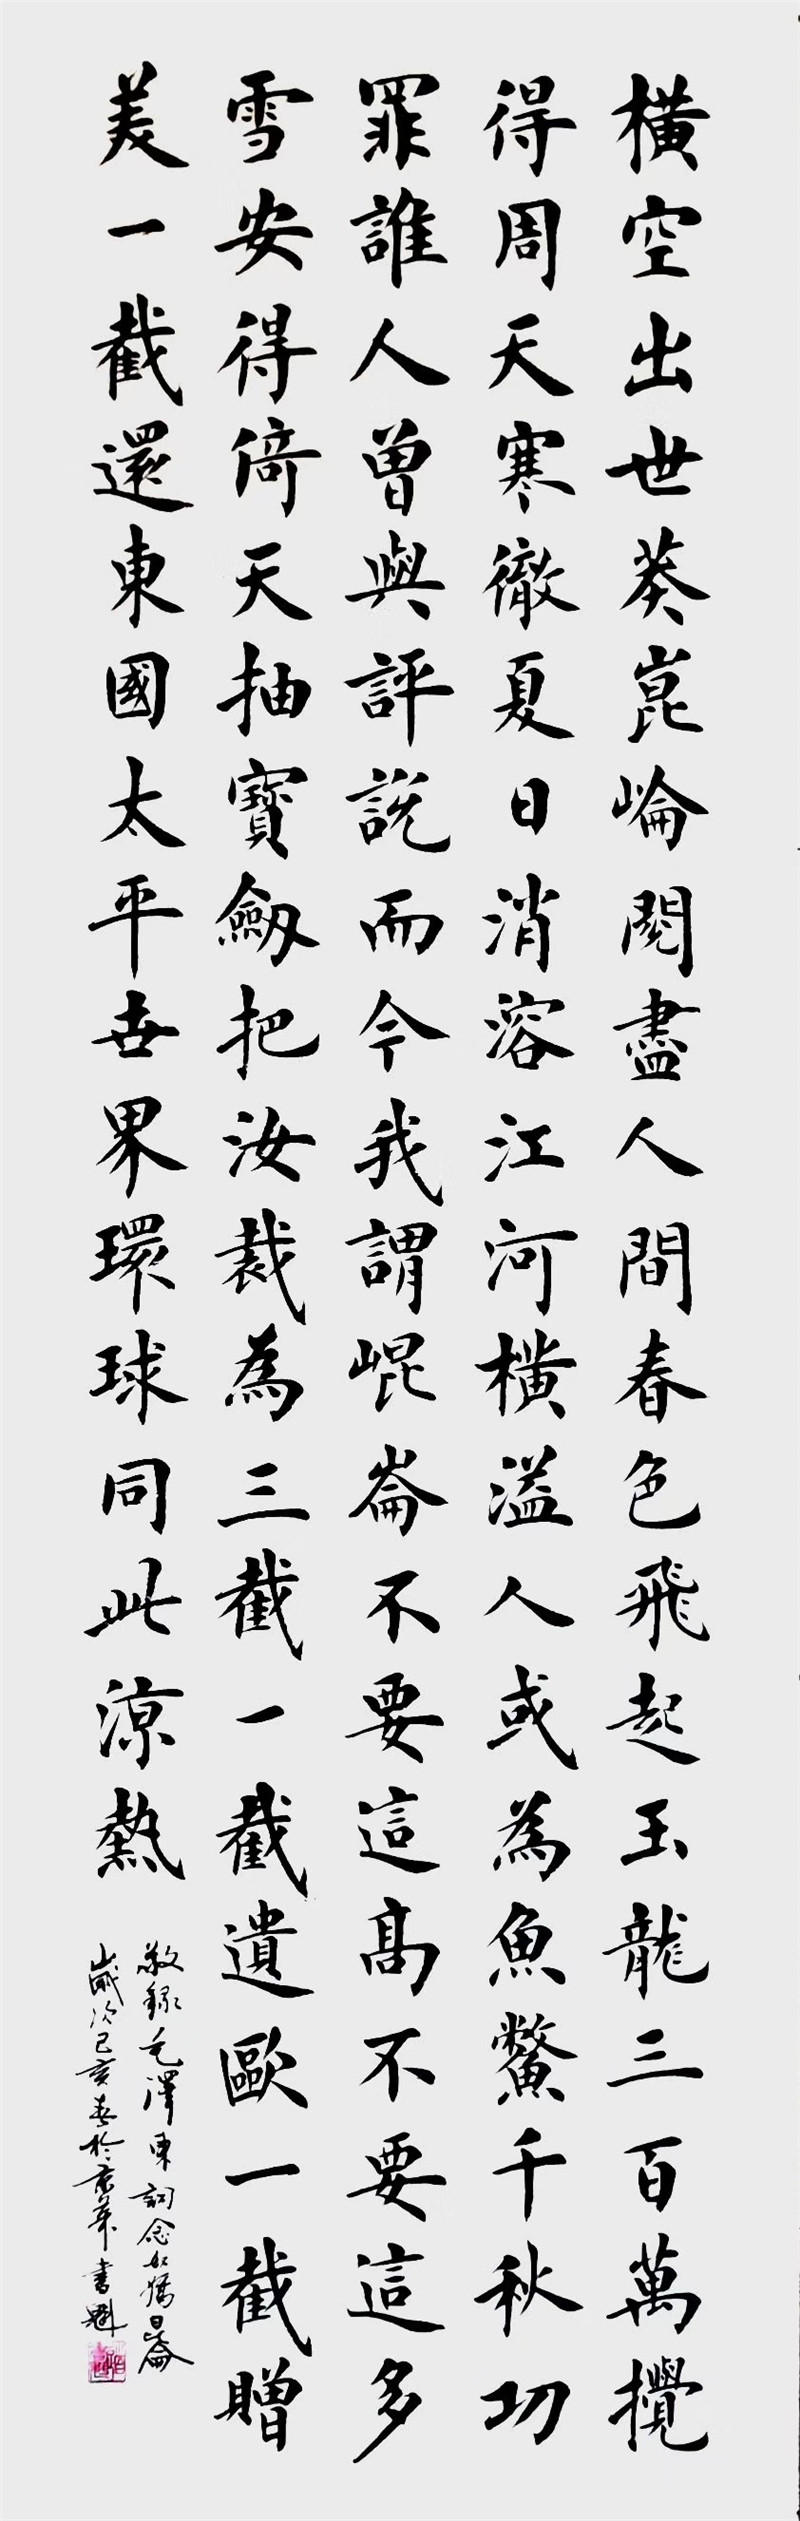 橫空出世莽崑崙閱盡人間春色飛起玉龍三百萬攪
得周天寒徹夏日消溶江河橫溢人或為魚鱉千秋功
罪誰人曾與評說而今我謂崐崙不要這高不要這多
雪安得倚天抽寶劍把汝裁為三截一截遺歐一截贈
美一截還東國太平世界環球同此涼熱
敬錄毛澤東詞念奴嬌崑崙
歲次己亥春於京華書魁